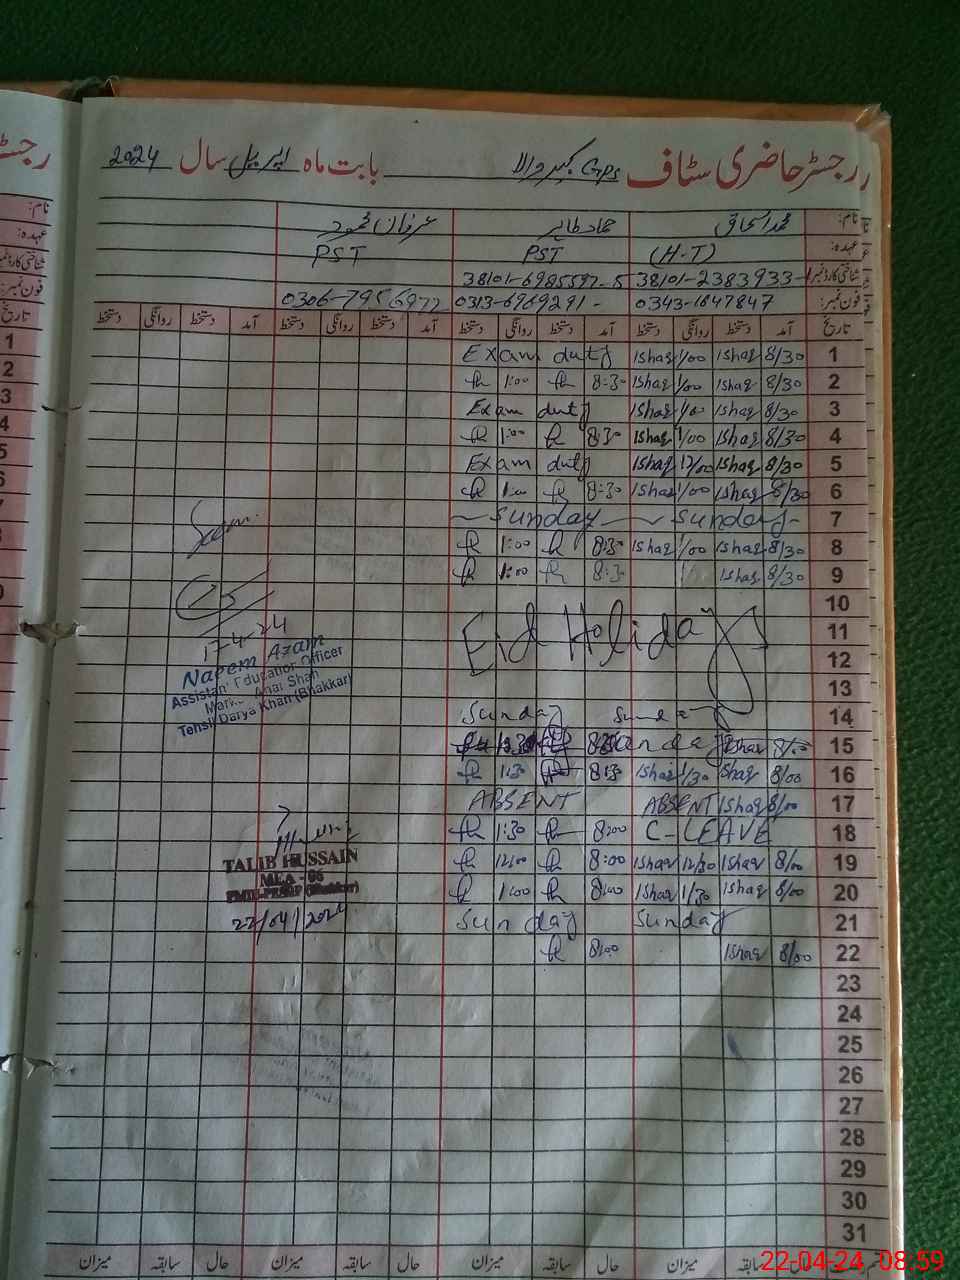 رجسٹر حاضری سٹاف Gps بابت ماہ اپریل سال 2024
نام: محمد اسحاق عرفان محمود
عہدہ: (H-T) PST PST
شناختی کارڈ نمبر 38101-2383933- 38101-6985597-5
فون نمبر: 0343-1647847 0313-6969291- 0306-7956977
تاریخ آمد دستخط روانگی دستخط آمد دستخط روانگی دستخط آمد دستخط روانگی دستخط آمد دستخط روانگی دستخط
1 8/30 Ishaq 1/00 Ishaq Exam duty
2 8/30 Ishaq 1/00 Ishaq 8:30 1:00
3 8/30 Ishaq 1/00 Ishaq Exam duty
4 8/30 Ishaq 1/00 Ishaq 8:30 1:00
5 8/30 Ishaq 12/00 Ishaq Exam duty
6 8/30 Ishaq 1/00 Ishaq 8:30 1:00
7 Sunday Sunday
8 8/30 Ishaq 1/00 Ishaq 8:30 1:00
9 8/30 Ishaq 8:30 1:00
10
11 Eid Holidays
12
13
14 Sunday Sunday
15 8/00 Ishaq Sunday
16 8/00 Ishaq 1/30 Ishaq 8:30 1:30
17 8/00 Ishaq ABSENT ABSENT
18 C-LEAVE 8:00 1:30
19 8/00 Ishaq 12/30 Ishaq 8:00 12:00
20 8/00 Ishaq 1/30 Ishaq 8:00 1:00
21 Sunday Sunday
22 8/00 Ishaq 8:00
23
24
25
26
27
28
29
30
31
17-4-24
Naeem Azam
Assistant Education Officer
Tehsil Darya Khan (Bhakkar)
TALIB HUSSAIN
MEA - 06
22/04/2024
میزان سابقہ حال میزان سابقہ حال میزان سابقہ حال
22-04-24 08:59